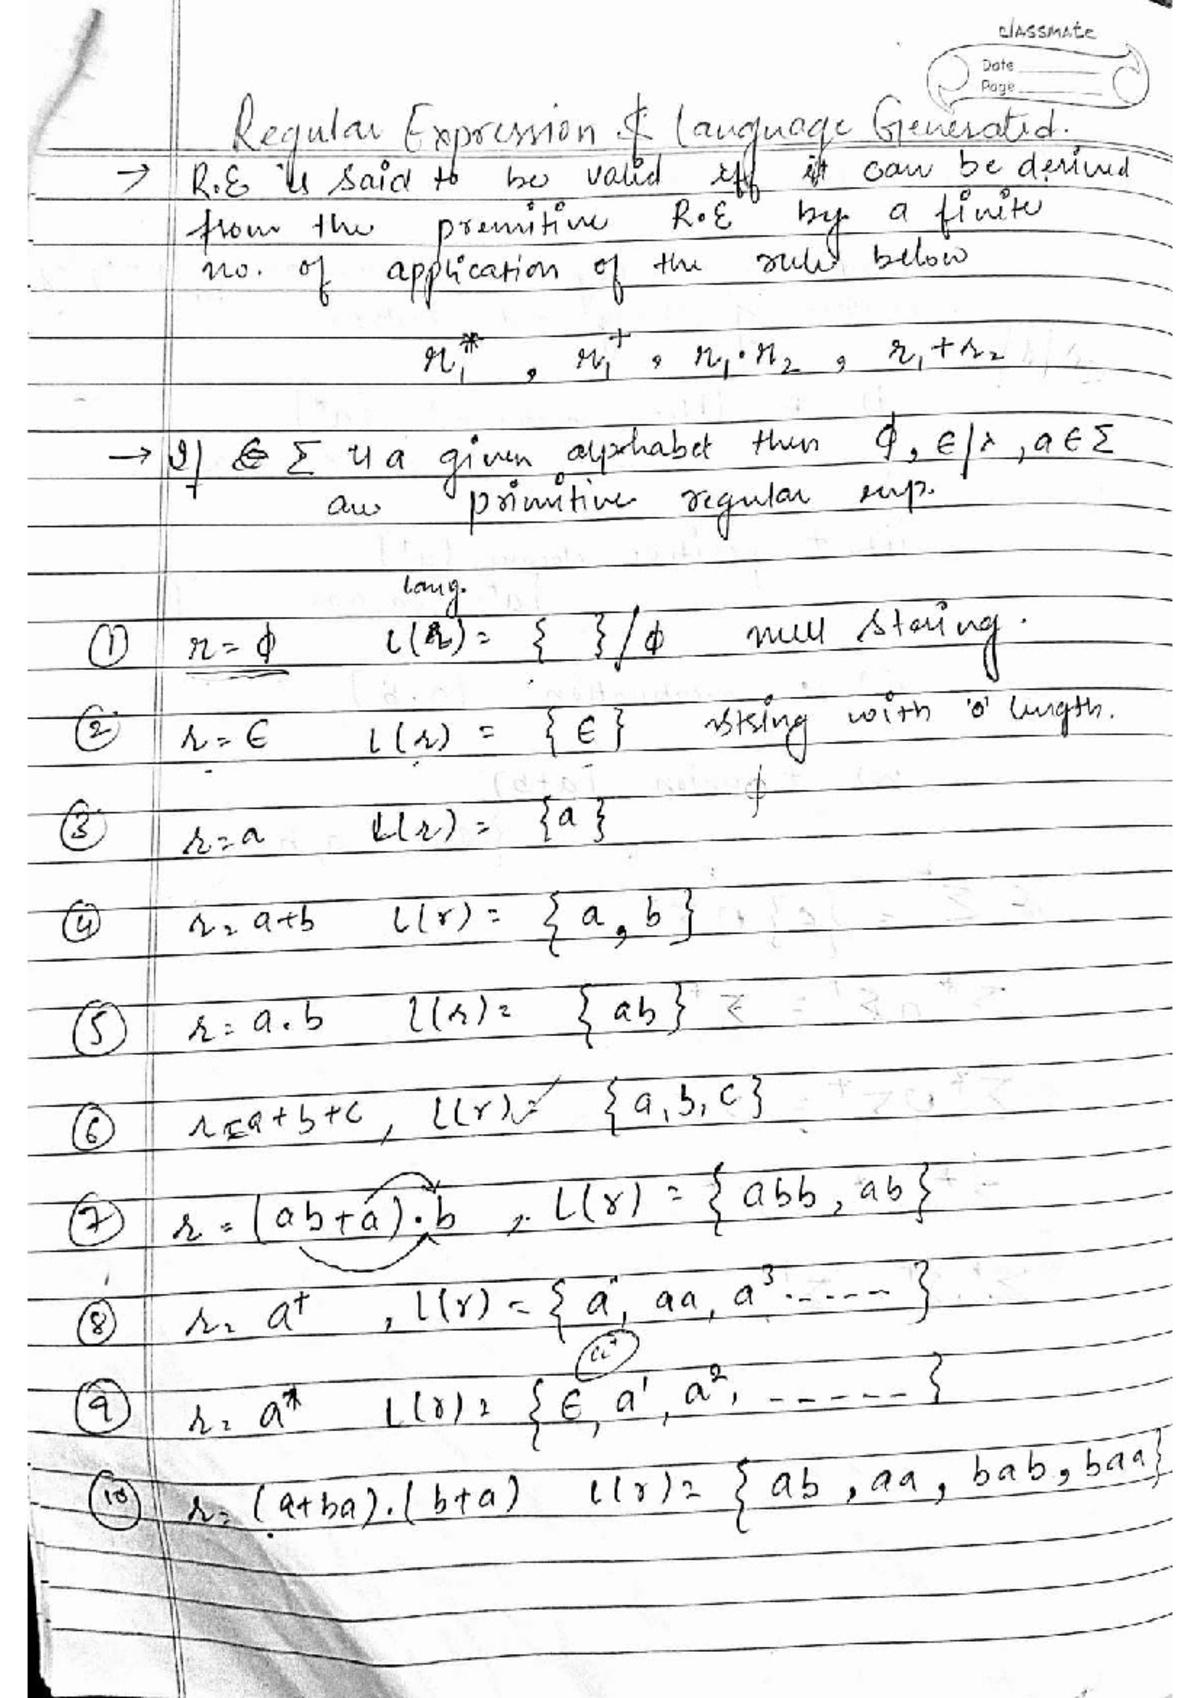 classmate
Date
Page
Regular Expression & Language Generated.
→ R.E is said to be valid iff it can be derived
from the premitive R.E by a finite
no. of application of the rule below
r₁* , r₁⁺ , r₁·r₂ , r₁+r₂
→ If Σ is a given alphabet then ϕ, ϵ/λ, a∈Σ
are primitive regular exp.
lang.
① r=ϕ L(r)= { }/ϕ null string.
② r=ϵ L(r) = {ϵ} string with '0' length.
ϕ
③ r=a L(r)= {a}
④ r= a+b L(r)= {a, b}
⑤ r= a.b L(r)= {ab}
⑥ r=a+b+c, L(r)= {a,b,c}
⑦ r = (ab+a)·b , L(r) = {abb, ab}
⑧ r= a⁺ , L(r) = {a, aa, a³.-----}
⑨ r= a* L(r)= {ϵ, a¹, a², -----}
⑩ r= (a+ba).(b+a) L(r)= {ab, aa, bab, baa}